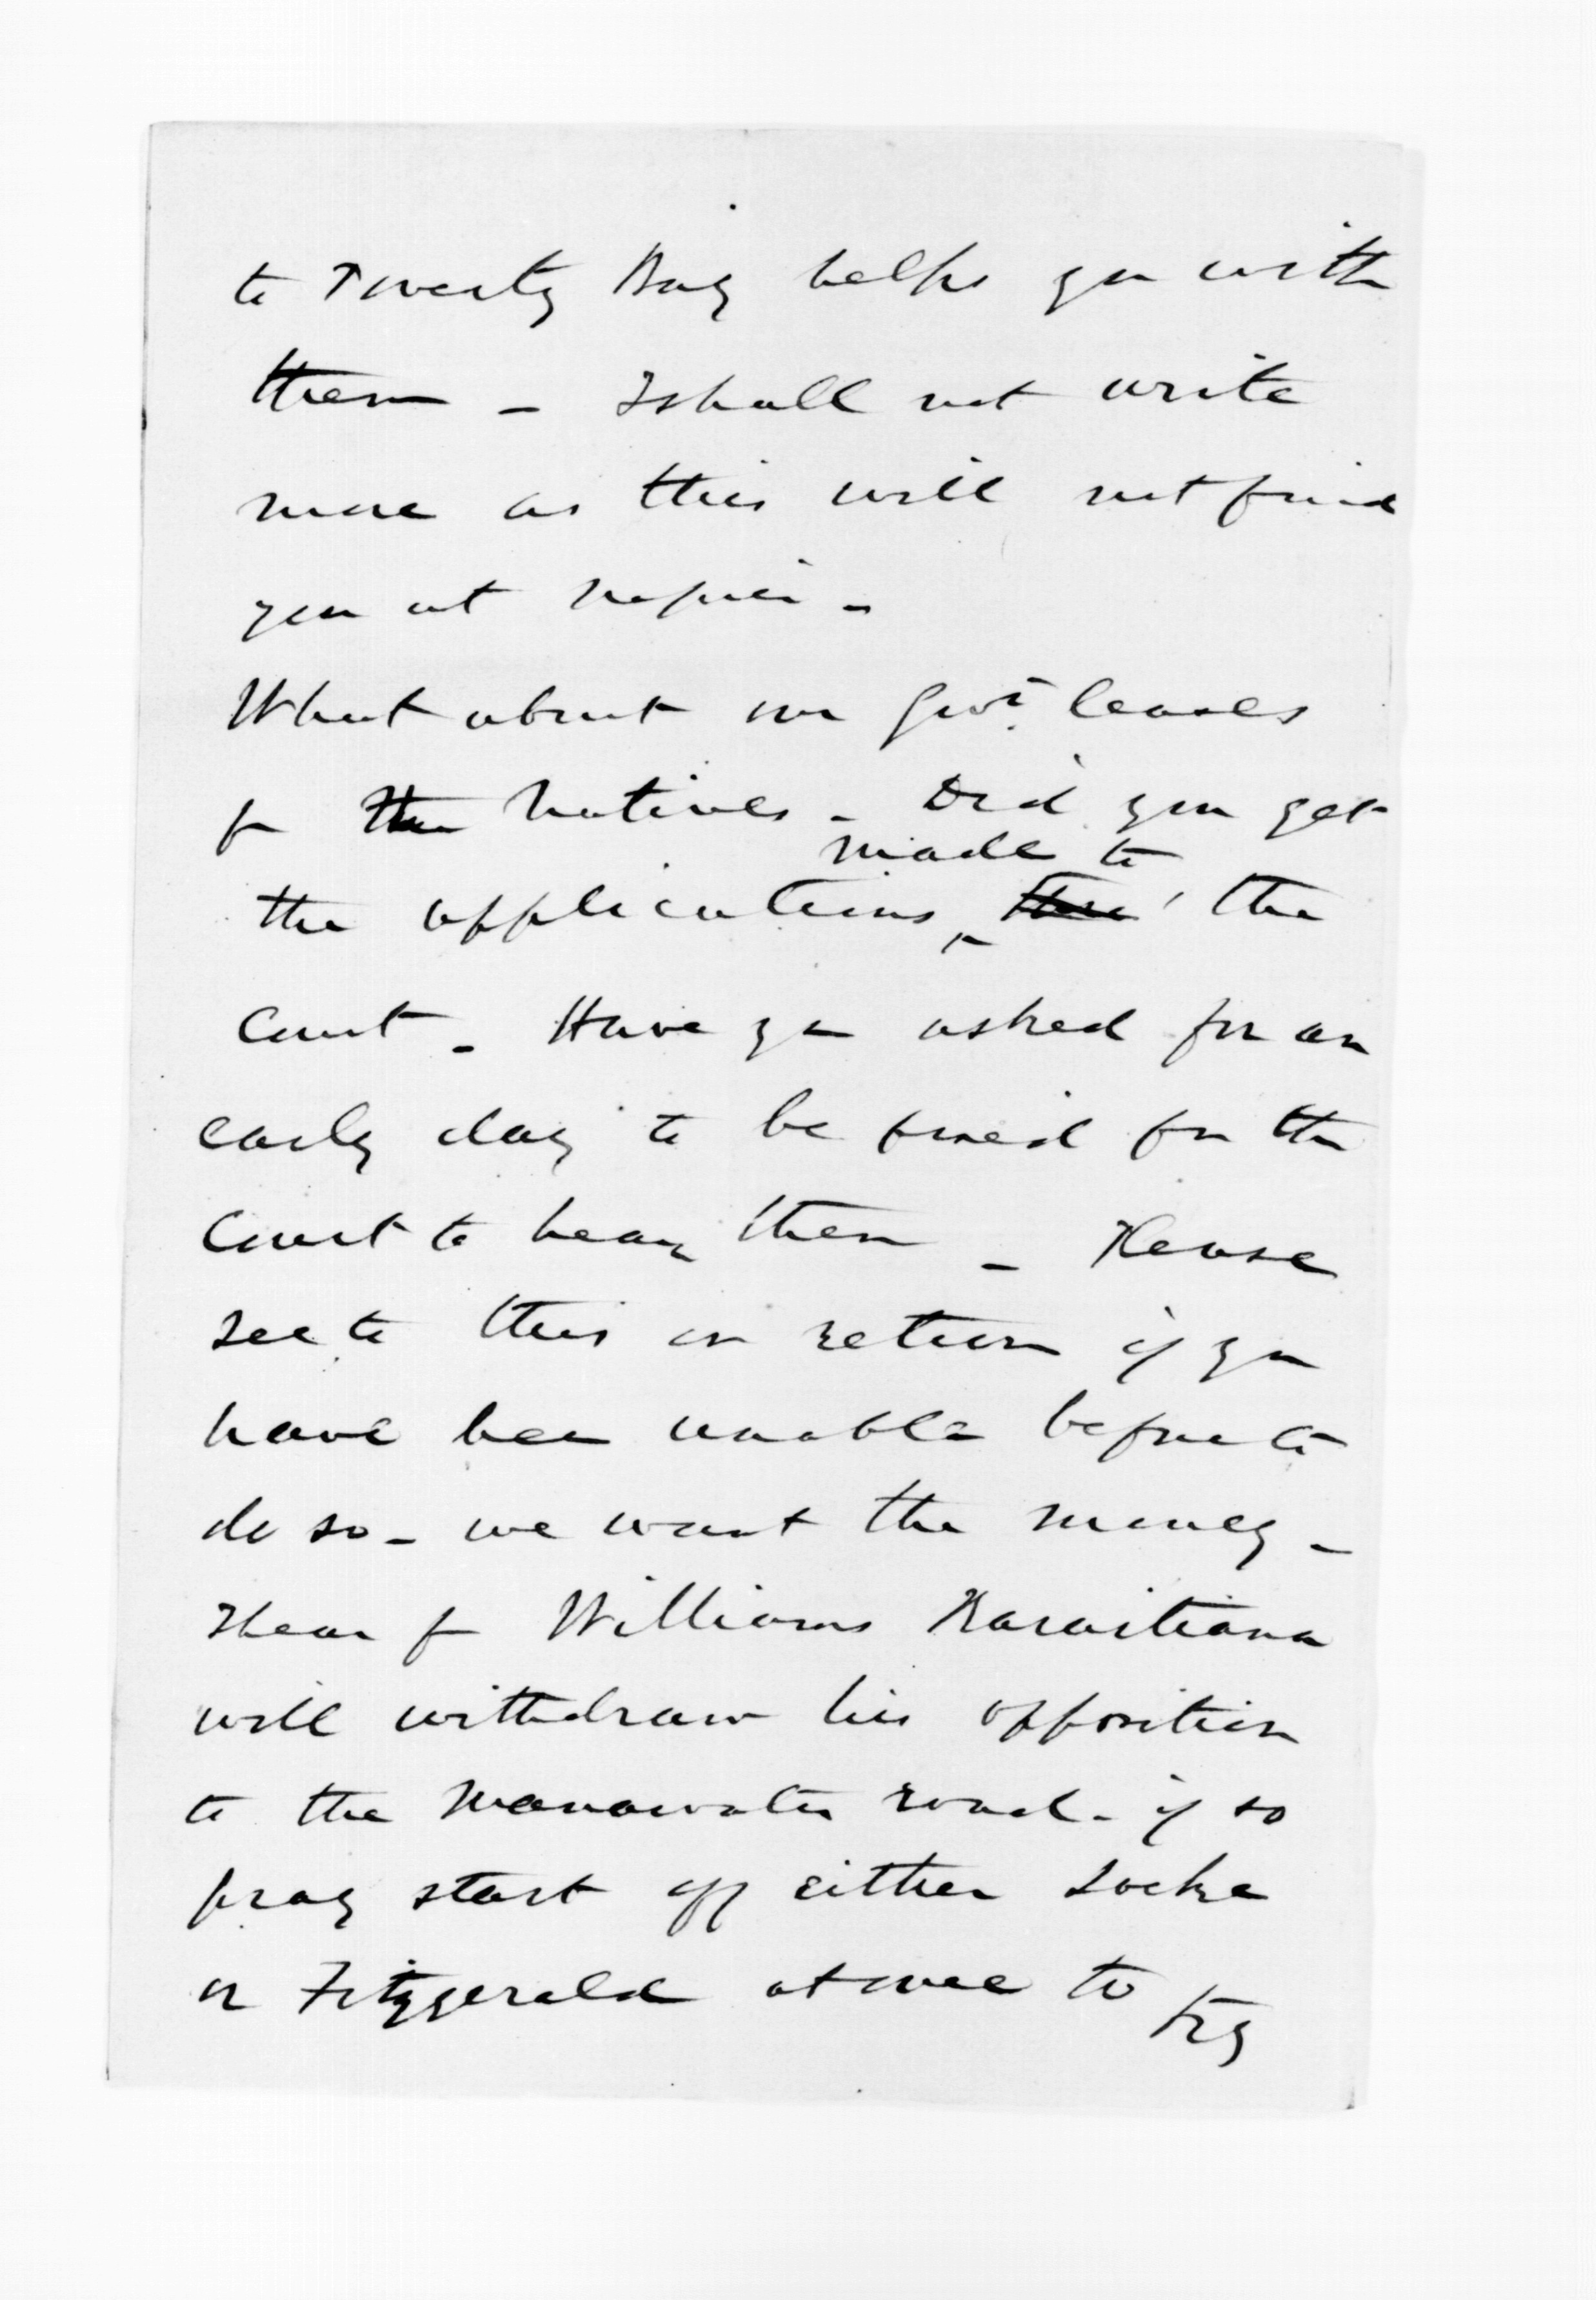 to Poverty Bay helps you with
them - I shall not write
more as this will not find
you at Napier -
What about our Govt. leases
fr the Natives - Did you get
made to
the applications, the
Court - Have you asked for an
early day to be fixed for the
Court to hear them - Please
see to this on return if you
have been unable before to
do so - we want the money -
I hear fr Williams Karaitiana
will withdraw his opposition
to the Manawatu road - if so
pray start off either Locke
or Fitzgerald at once to try